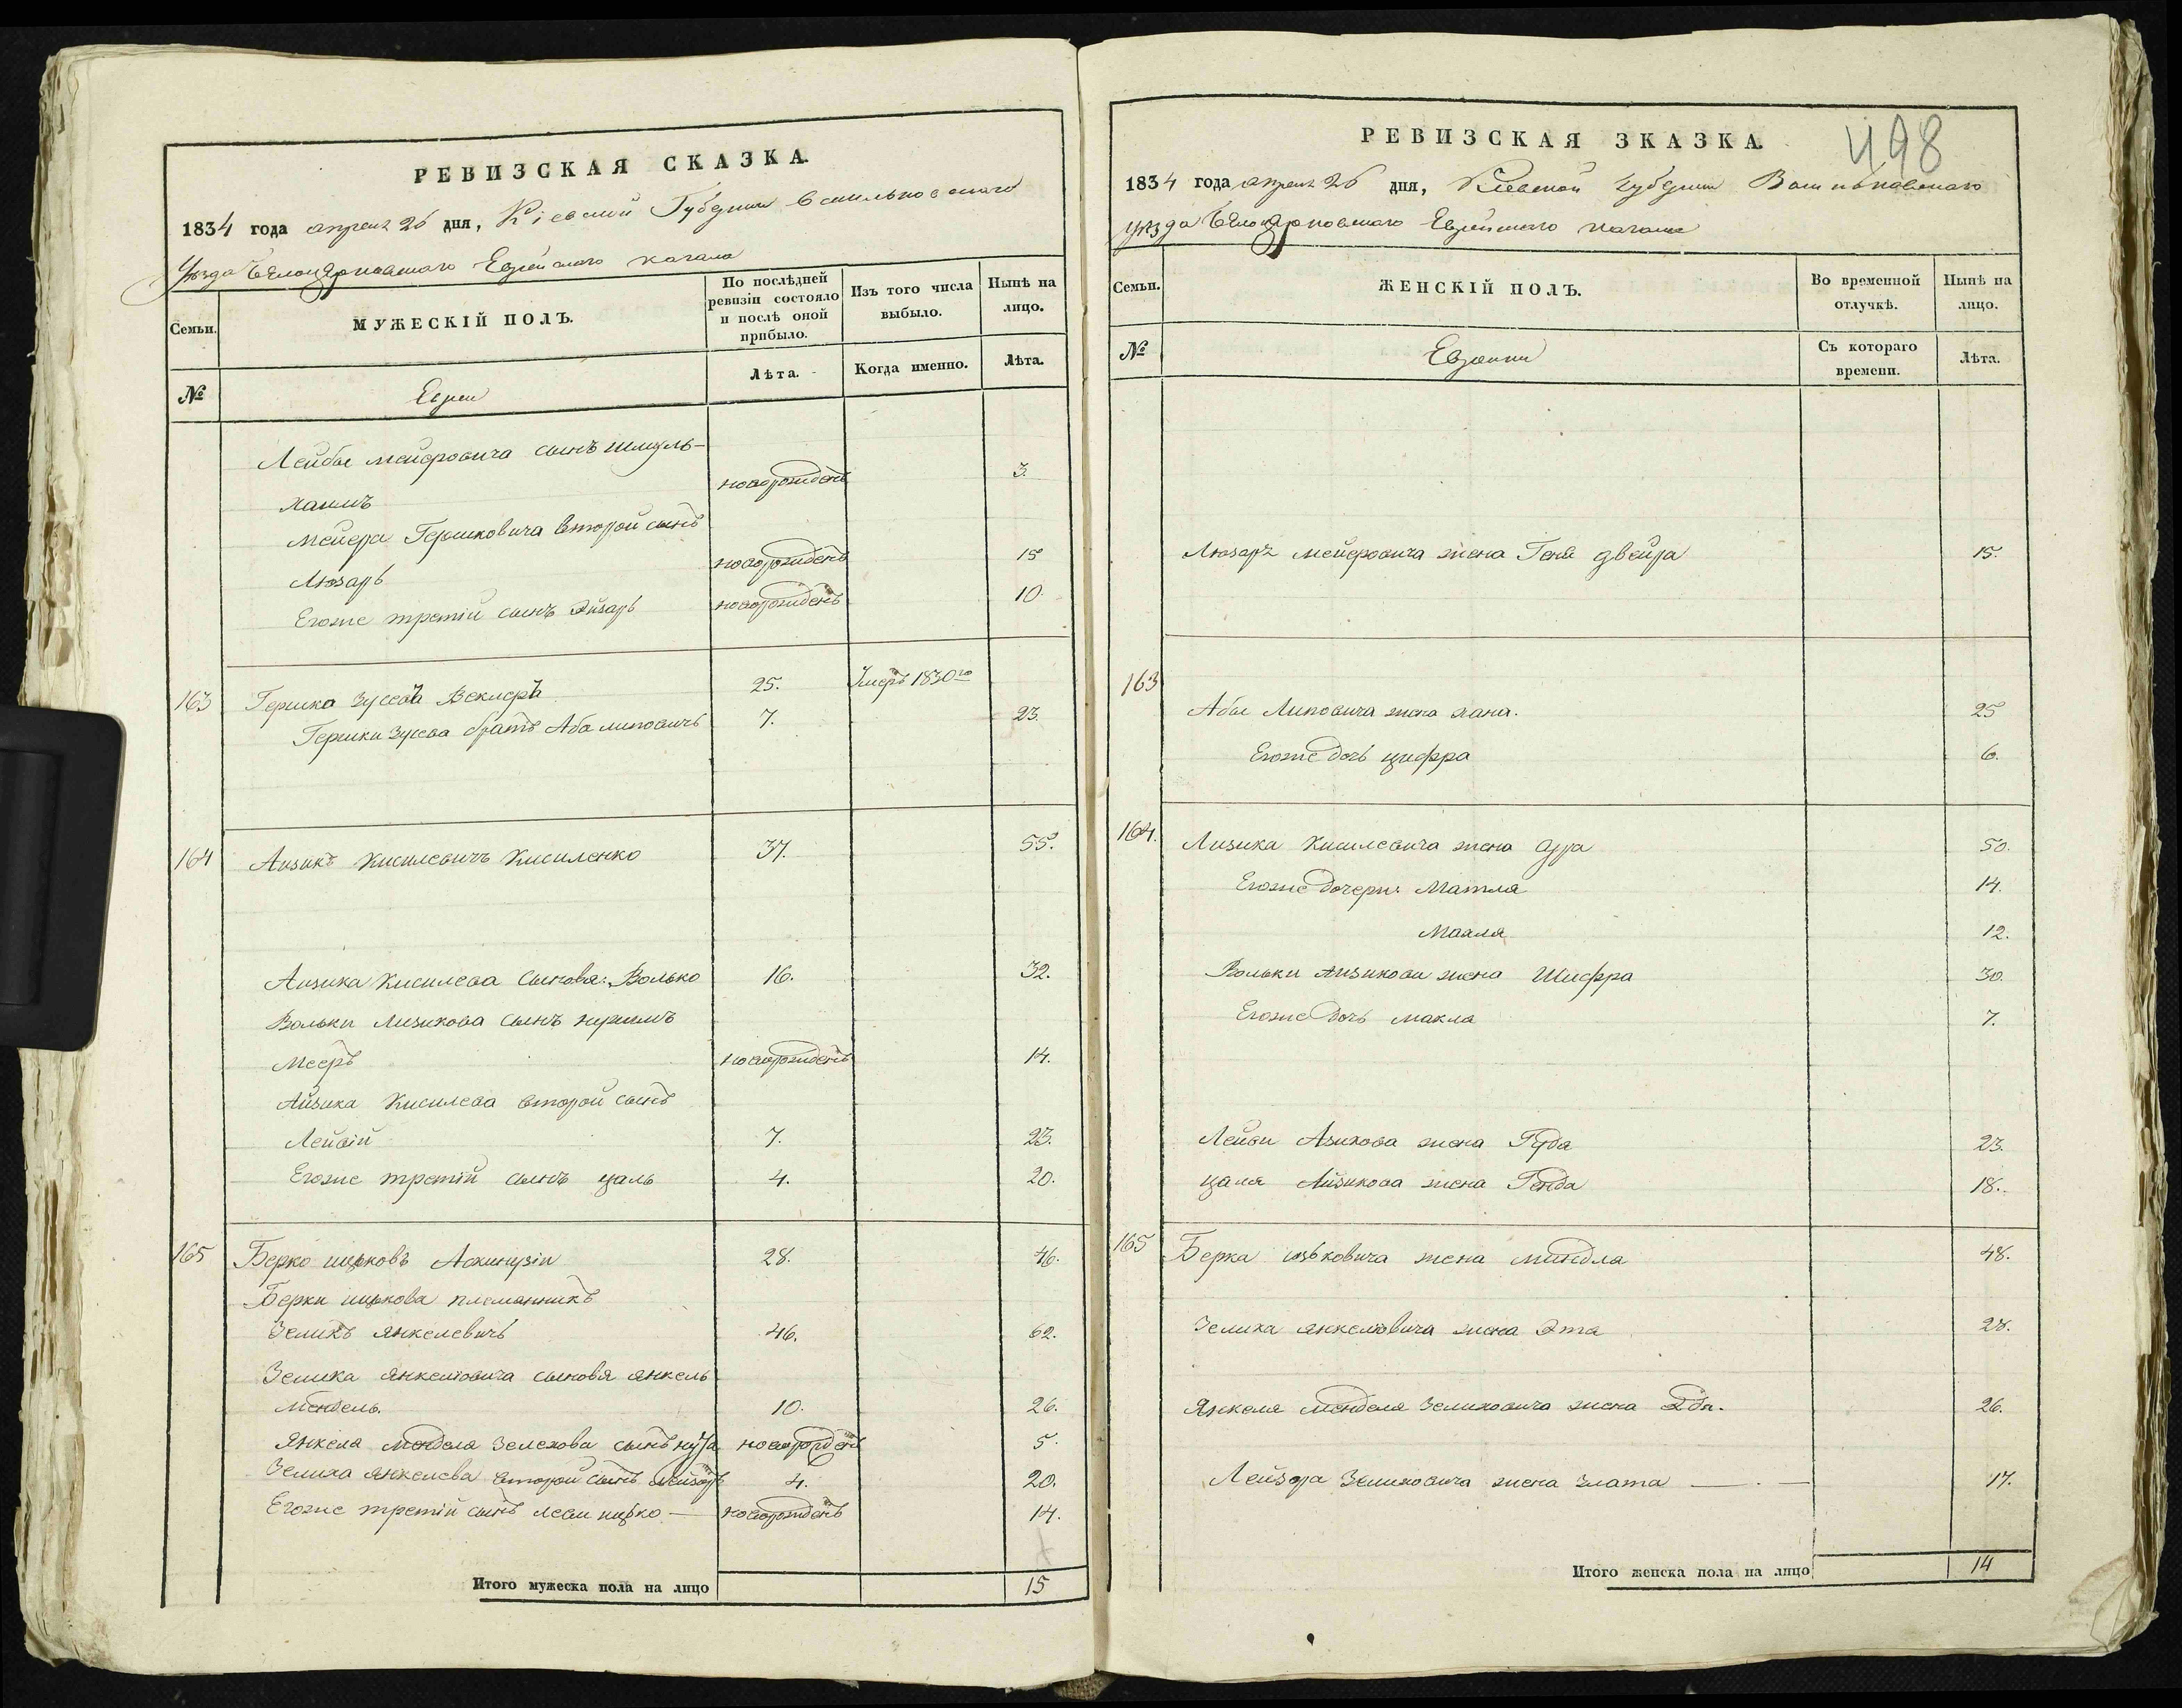 РЕВИЗСКАЯ СКАЗКА.
1834 года апреля 26 дня, Кіевской Губерніи Васильковскаго
Уѣзда Бѣлоцерковскаго Еврейскаго кагала
Семьи.
МУЖЕСКІЙ ПОЛЪ.
По послѣдней ревизіи состояло и послѣ оной прибыло.
Изъ того числа выбыло.
Нынѣ на лицо.
№
Евреи
Лѣта.
Когда именно.
Лѣта.
Лейбы Мейеровича сынъ Шмуль-
Хаимъ новорожденъ 3.
Мейера Гершковича второй сынъ
Люзарь новорожденъ 15
Егоже третій сынъ Айзарь новорожденъ 10.
163 Гершко Зусевъ Векслеръ 25. Умеръ 1830го
Гершки Зусева братъ Аба Липовичъ 7. 23.
164 Аизикъ Кисилевичъ Кисиленко 37. 55.
Аизика Кисилева сыновья: Волько 16. 32.
Вольки Аизикова сынъ
Мееръ новорожденъ 14.
Айзика Кисилева второй сынъ
Лейвій 7. 23.
Егоже третій сынъ Цаль 4. 20.
165 Берко Ицьковъ 28. 46.
Берки Ицькова племянникъ
Зеликъ Янкелевичъ 46. 62.
Зелика Янкелювича сыновья Янкель
Мендель. 10. 26.
Янкеля Менделя Зелехова сынъ Нута новорожденъ 5.
Зелиха Янкелева второй сынъ Лейзоръ 4. 20.
Егоже третій сынъ Леви Ицько — новорожденъ 14.
Итого мужеска пола на лицо 15
498
РЕВИЗСКАЯ ЗКАЗКА.
1834 года апреля 26 дня, Кіевской Губерніи Васильковскаго
Уѣзда Бѣлоцерковскаго Еврейскаго кагала
Семьи.
ЖЕНСКІЙ ПОЛЪ.
Во временной отлучкѣ.
Нынѣ на лицо.
№
Еврейки
Съ котораго времени.
Лѣта.
Люзаря Мейеровича жена Геня Двейра 15.
163
Абы Липовича жена Хана. 25
Егоже дочь Цифра 6.
164. Аизика Кисилевича жена Сура 50.
Егоже дочери: Матля 14.
Махля 12.
Вольки Аизикова жена Шифра 30.
Егоже дочь Макла 7.
Лейви Азикова жена Гуда 23.
Цаля Айзикова жена Генда 18.
165 Берка Ицьковича жена Миндла 48.
Зелиха Янкелювича жена Эта 28.
Янкеля Менделя Зелиховича жена 26.
Лейзора Зелиховича жена Злата — . — 17.
Итого женска пола на лицо 14